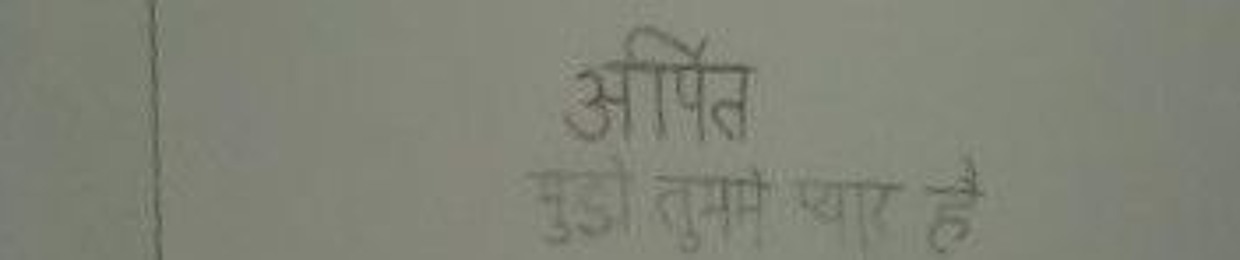 अर्पित
मुझे तुमसे प्यार है